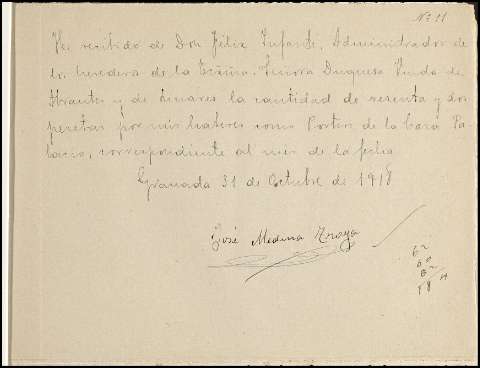 Nº 11
He recibido de Don Félix Infante, Administrador de
los heredera de la Exsma. Señora Duquesa Viuda de
Abrantes y de Linares la cantidad de sesenta y dos
pesetas por mis haberes como Portero de la Casa Pa-
lacio, correspondiente al mes de la fecha
Granada 31 de Octubre de 1918
José Medina